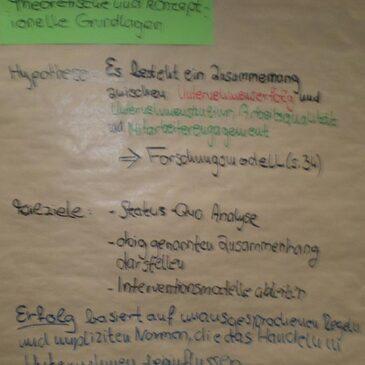 Theoretische und konzept-
ionelle Grundlagen
Hypothese: Es besteht ein Zusammenhang
zwischen Unternehmenserfolg und
Unternehmenskultur, Arbeitsqualität
und Mitarbeiterengagement
⇒ Forschungsmodell (S. 34)
Teilziele: - Status-Quo Analyse
- obig genannten Zusammenhang
darstellen
- Interventionsmodelle ableiten
Erfolg basiert auf unausgesprochenen Regeln
und impliziten Normen, die das Handeln in
Unternehmen beeinflussen